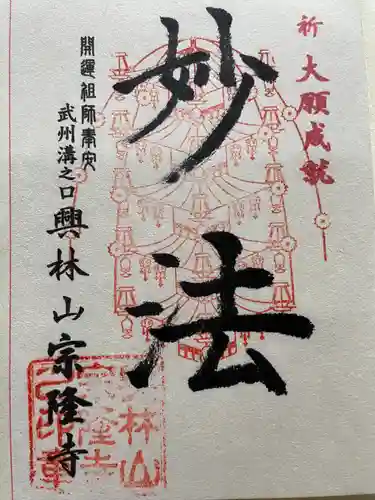 祈 大願成就
妙法
開運祖師奉安
武州溝之口 興林山宗隆寺